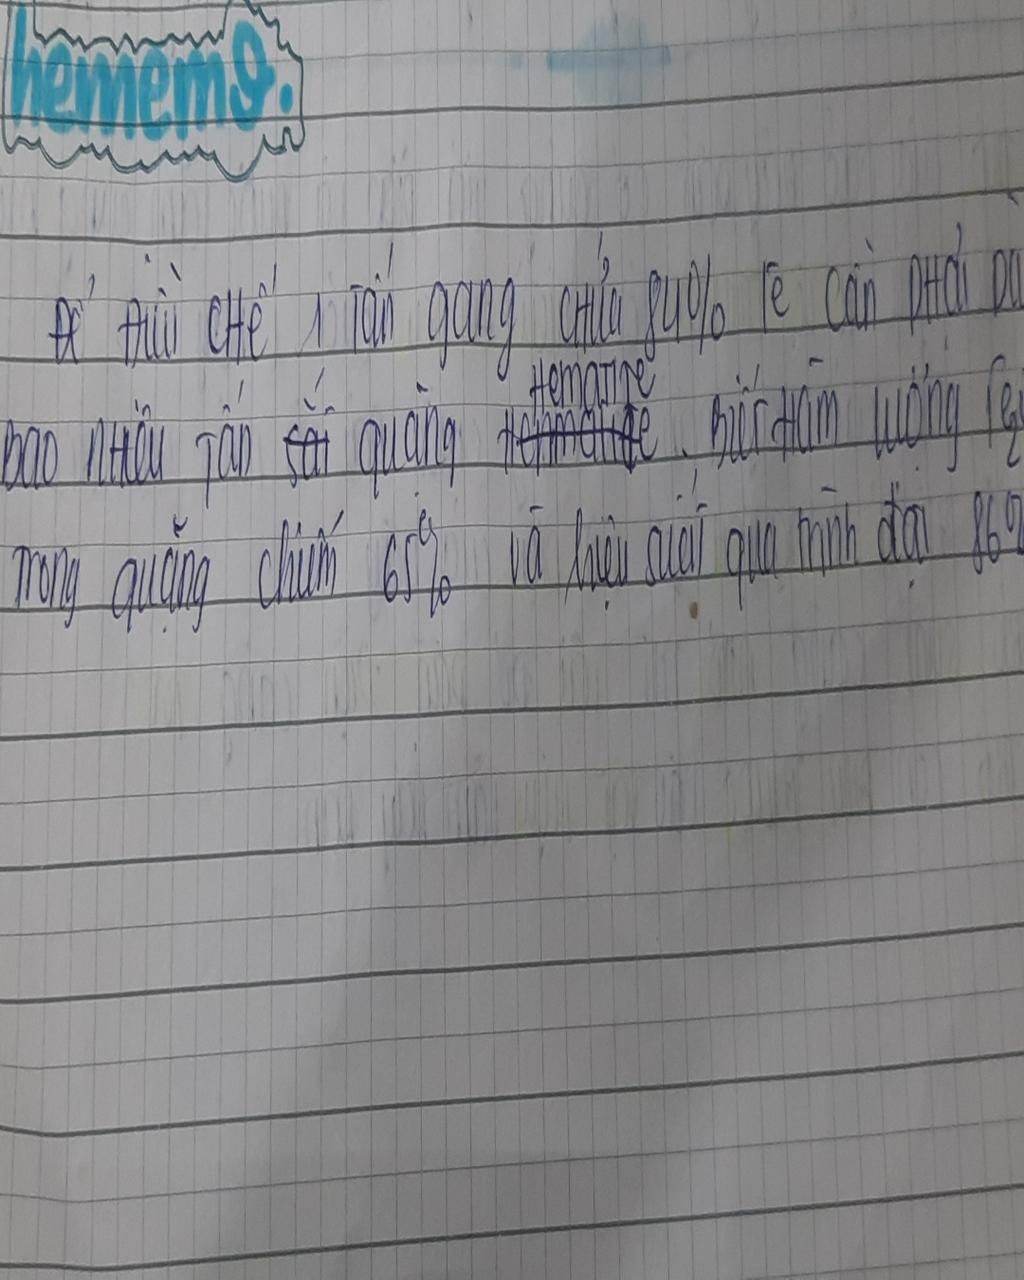 hemem9.
Để điều chế 1 tấn gang chứa 84% Fe cần phải
bao nhiêu tấn quặng Hematite. Biết hàm lượng
trong quặng chiếm 65% và hiệu suất qua trình đạt 86%